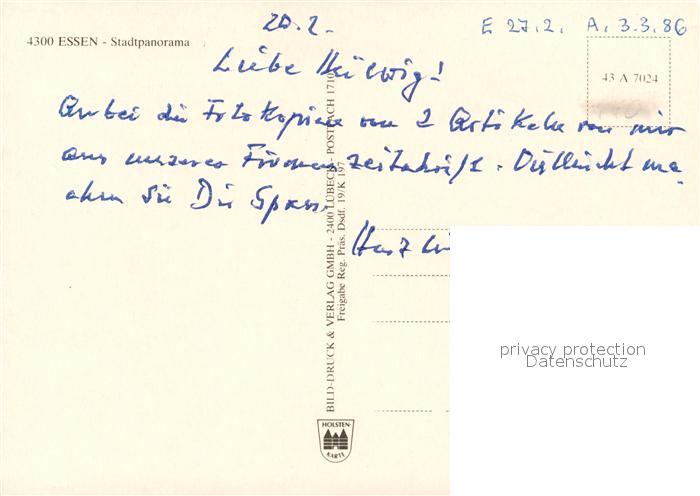 20.2.
E 27.2. A. 3.3.86
4300 ESSEN - Stadtpanorama
43 A 7024
Liebe Heilwig!
Anbei die Fotokopien von 2 Artikeln von mir
aus unserer Firmenzeitschrift. Vielleicht ma-
chen sie Dir Spass.
Herzl
BILD-DRUCK & VERLAG GMBH - 2400 LÜBECK - POSTFACH 1710
Freigabe Reg. Präs. Dsdf. 19/K 197
HOLSTEN-
KARTE
privacy protection
Datenschutz